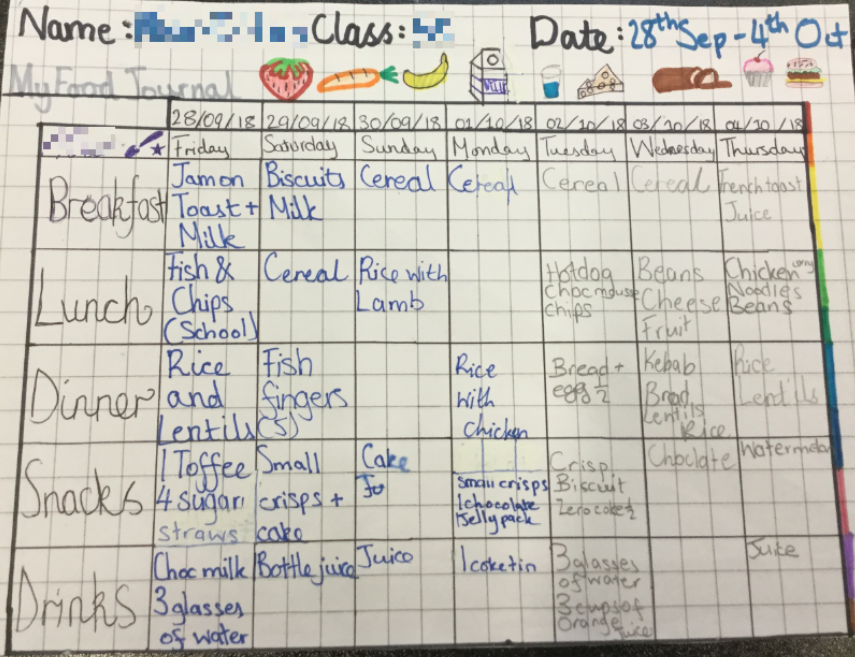 Name: Class: Date: 28th Sep - 4th Oct
My Food Journal
28/09/18 29/09/18 30/09/18 01/10/18 02/10/18 03/10/18 04/10/18
Friday Saturday Sunday Monday Tuesday Wednesday Thursday
Breakfast
Jamon
Toast +
Milk
Biscuits
Milk
Cereal
Cereal
Cereal
Cereal
Frenchtoast
Juice
Lunch
Fish &
Chips
(School)
Cereal
Rice with
Lamb
Hotdog
Chocmousse
chips
Beans
Cheese
Fruit
Chicken
Noodles
Beans
Dinner
Rice
and
Lentils
Fish
fingers
(5)
Rice
with
Chicken
Bread +
egg ½
Kebab
Bread
Lentils
Rice
Rice
Lentils
Snacks
1 Toffee
4 sugar
straws
Small
crisps +
cake
Cake
Small crisps
1 chocolate
1 Jelly pack
Crisp
Biscuit
Zero coke ½
Choclate
Watermelon
Drinks
Choc milk
3 glasses
of water
Bottle juice
Juice
1 coke tin
3 glasses
of water
3 cups of
Orange juice
Juice